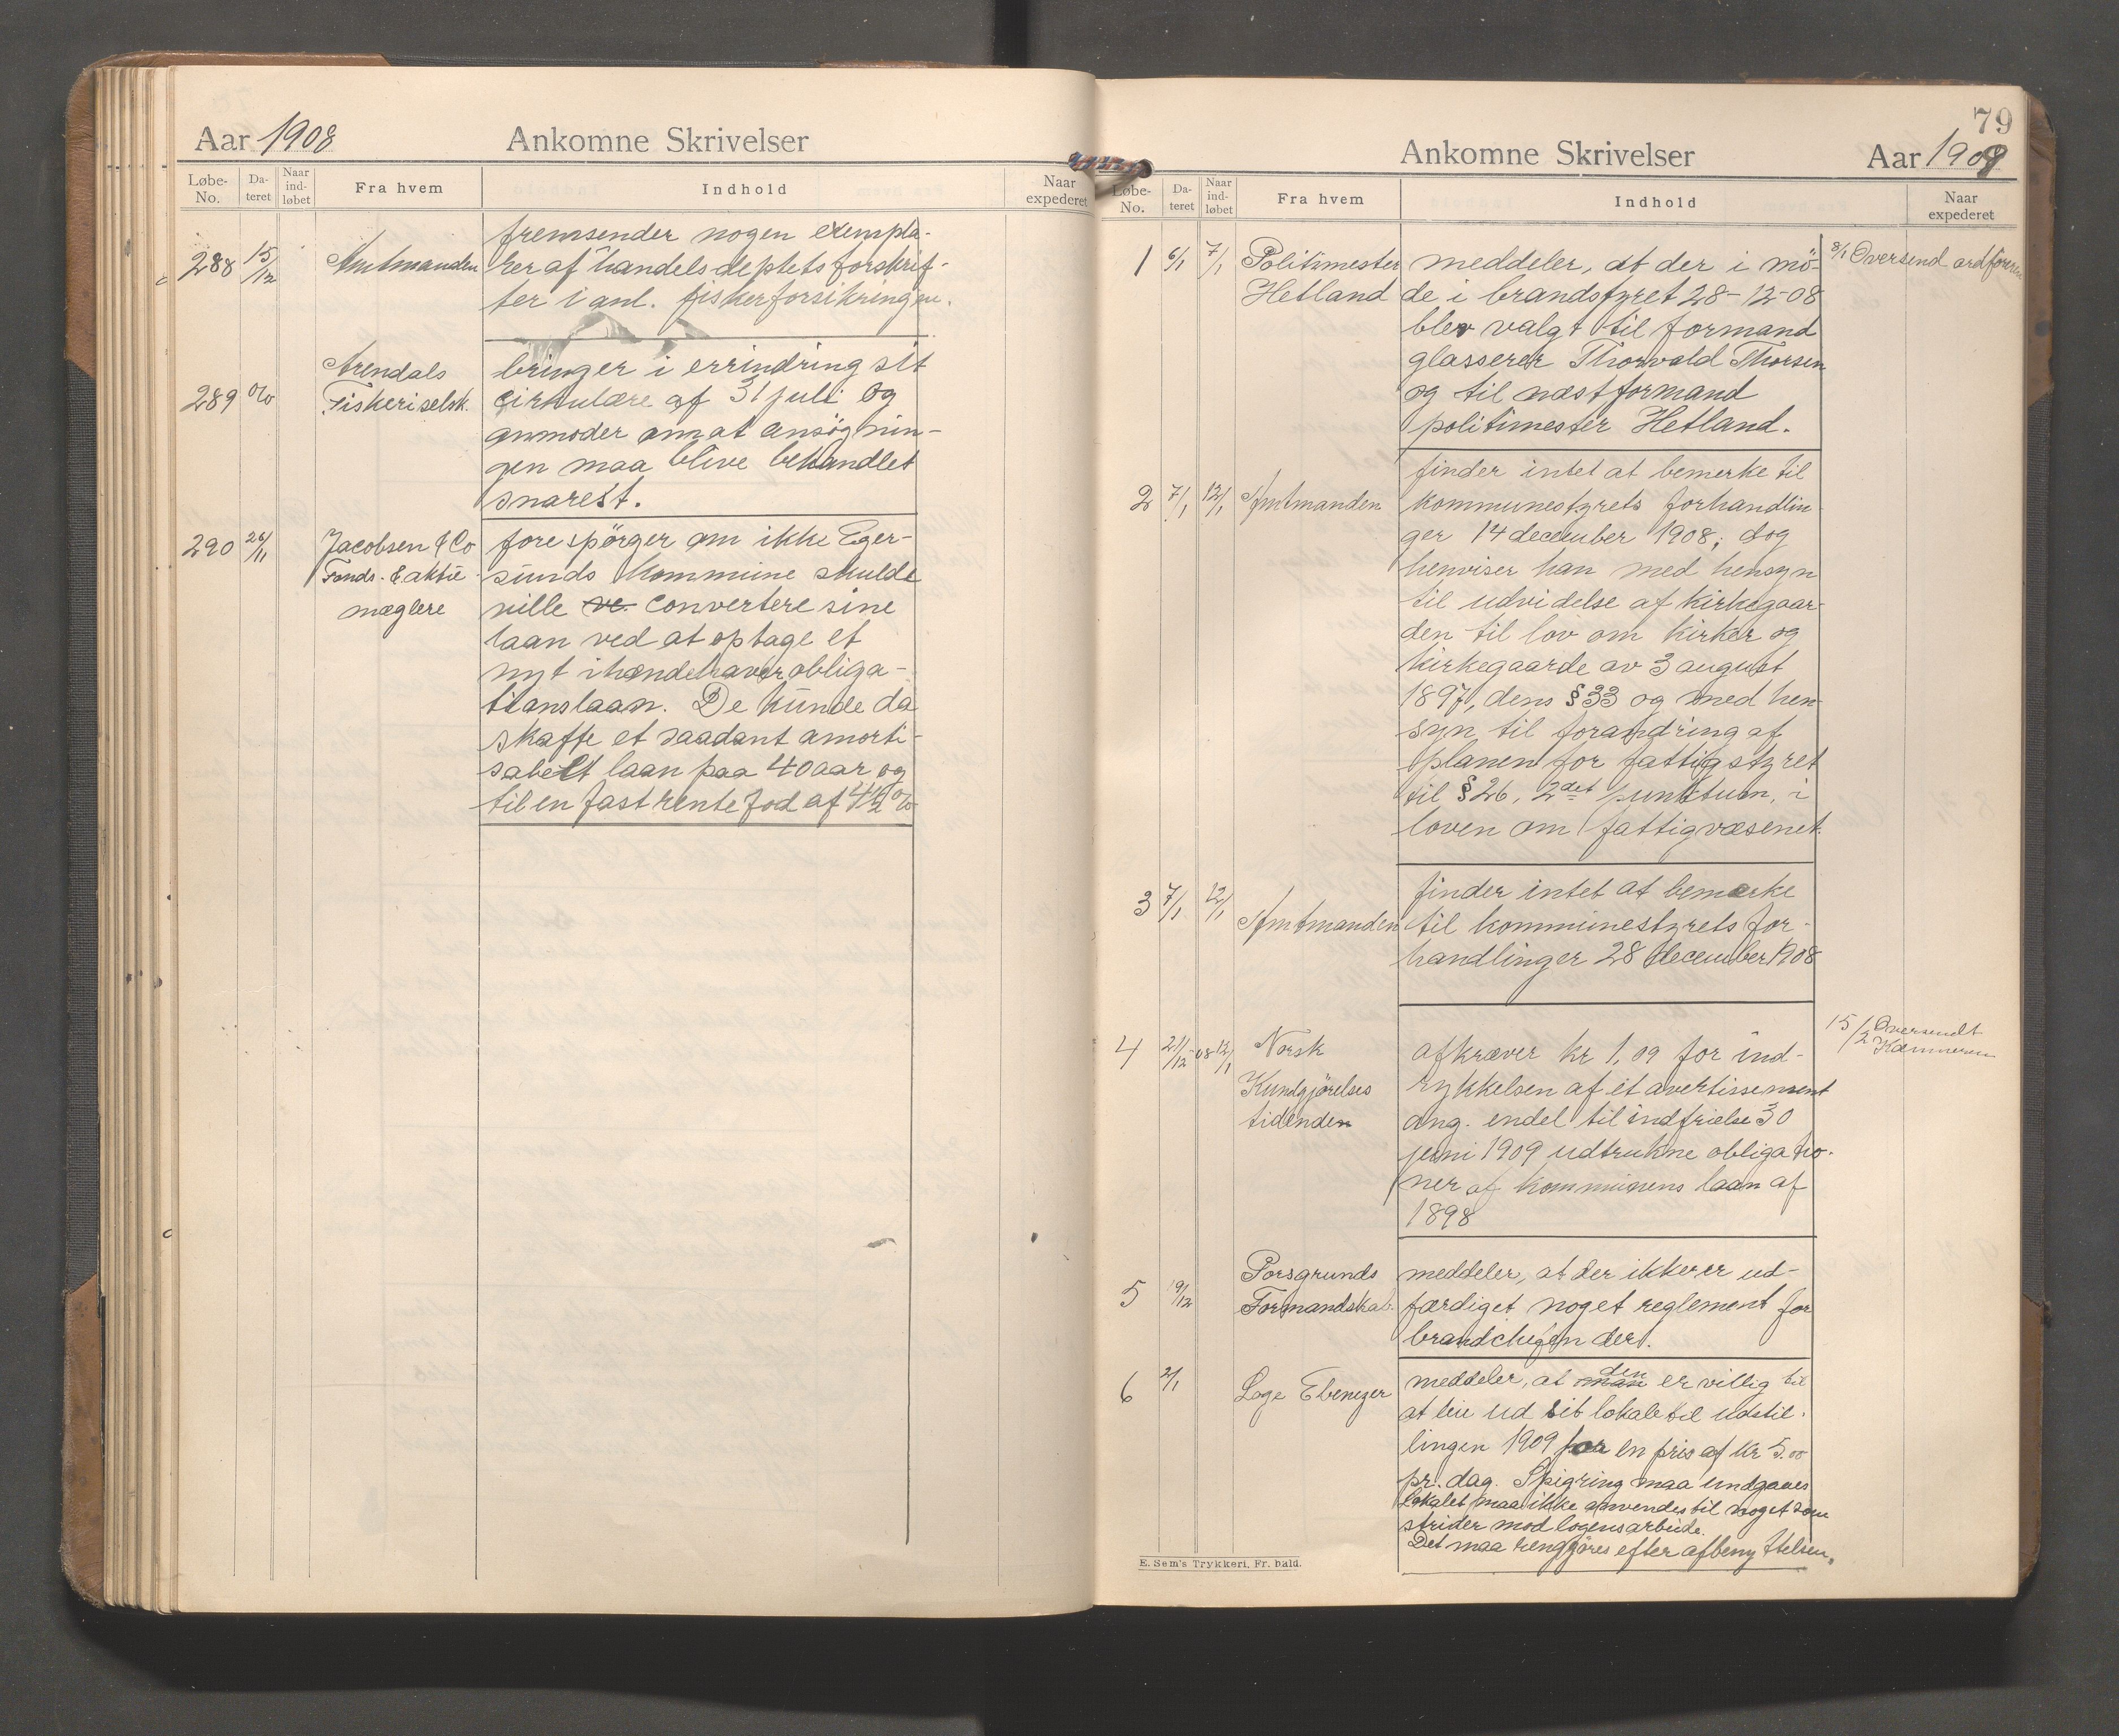 Aar 1908 Ankomne Skrivelser
Løbe-No. Da-teret Naar ind-løbet Fra hvem Indhold Naar expederet
fremsender nogen exempla-
288 15/12 Amtmanden rer af handelsdeptets forskrif-
ter i anl. fiskerforsikringen.
Arendals bringer i errindring sit
289 Fiskeriselsk. cirkulære af 31 juli og
anmoder om at ansøgnin-
gen maa blive behandlet
snarest.
290 26/11 Jacobsen & Co forespörger om ikke Eger-
Fonds- & aktie- sunds kommune skulde
mæglere ville ve. convertere sine
laan ved at optage et
nyt ihændehaverobliga-
tionslaan. De kunde da
skaffe et saadant amorti-
sabelt laan paa 40 aar og
til en fast rentefod af 4½ %
79
Ankomne Skrivelser Aar 1909
Løbe-No. Da-teret Naar ind-løbet Fra hvem Indhold Naar expederet
1 6/1 7/1 Politimester meddeler, at der i mö- 8/1 Oversend ordföreren
Hetland de i brandstyret 28-12-08
blev valgt til formand
glasserer Thorvald Thorsen
og til næstformand
politimester Hetland.
finder intet at bemerke til
2 7/1 12/1 Amtmanden kommunestyrets forhandlin-
ger 14 december 1908; dog
henviser han med hensyn
til udvidelse af kirkegaar-
den til lov om kirker og
kirkegaarde av 3 august
1897, dens § 33 og med hen-
syn til forandring af
planen for fattigstyret
til § 26, 2det punktum, i
loven om fattigvæsenet.
finder intet at bemerke
3 7/1 12/1 Amtmanden til kommunestyrets for-
handlinger 28 december 1908
4 21/12-08 12/1 Norsk afkræver kr 1,09 for ind- 15/2 Oversendt Kæmneren
Kundgjörelses rykkelsen af et avertissement
tidenden ang. endel til indfrielse 30
juni 1909 udtrukne obligatio-
ner af kommunens laan af
1898
Porsgrunds meddeler, at der ikke er ud-
5 19/12 Formandskab. færdiget noget reglement for
brandchefen der.
6 2/1 Loge Ebenezer meddeler, at man den er villig til
at leie ud sit lokale til udstil-
lingen 1909 for en pris af kr 5.00
pr. dag. Spigring maa undgaaes
Lokalet maa ikke anvendes til noget som
strider mod logens arbeide.
Det maa rengjöres efter afbenyttelsen.
E. Sem's Trykkeri, Fr. hald.